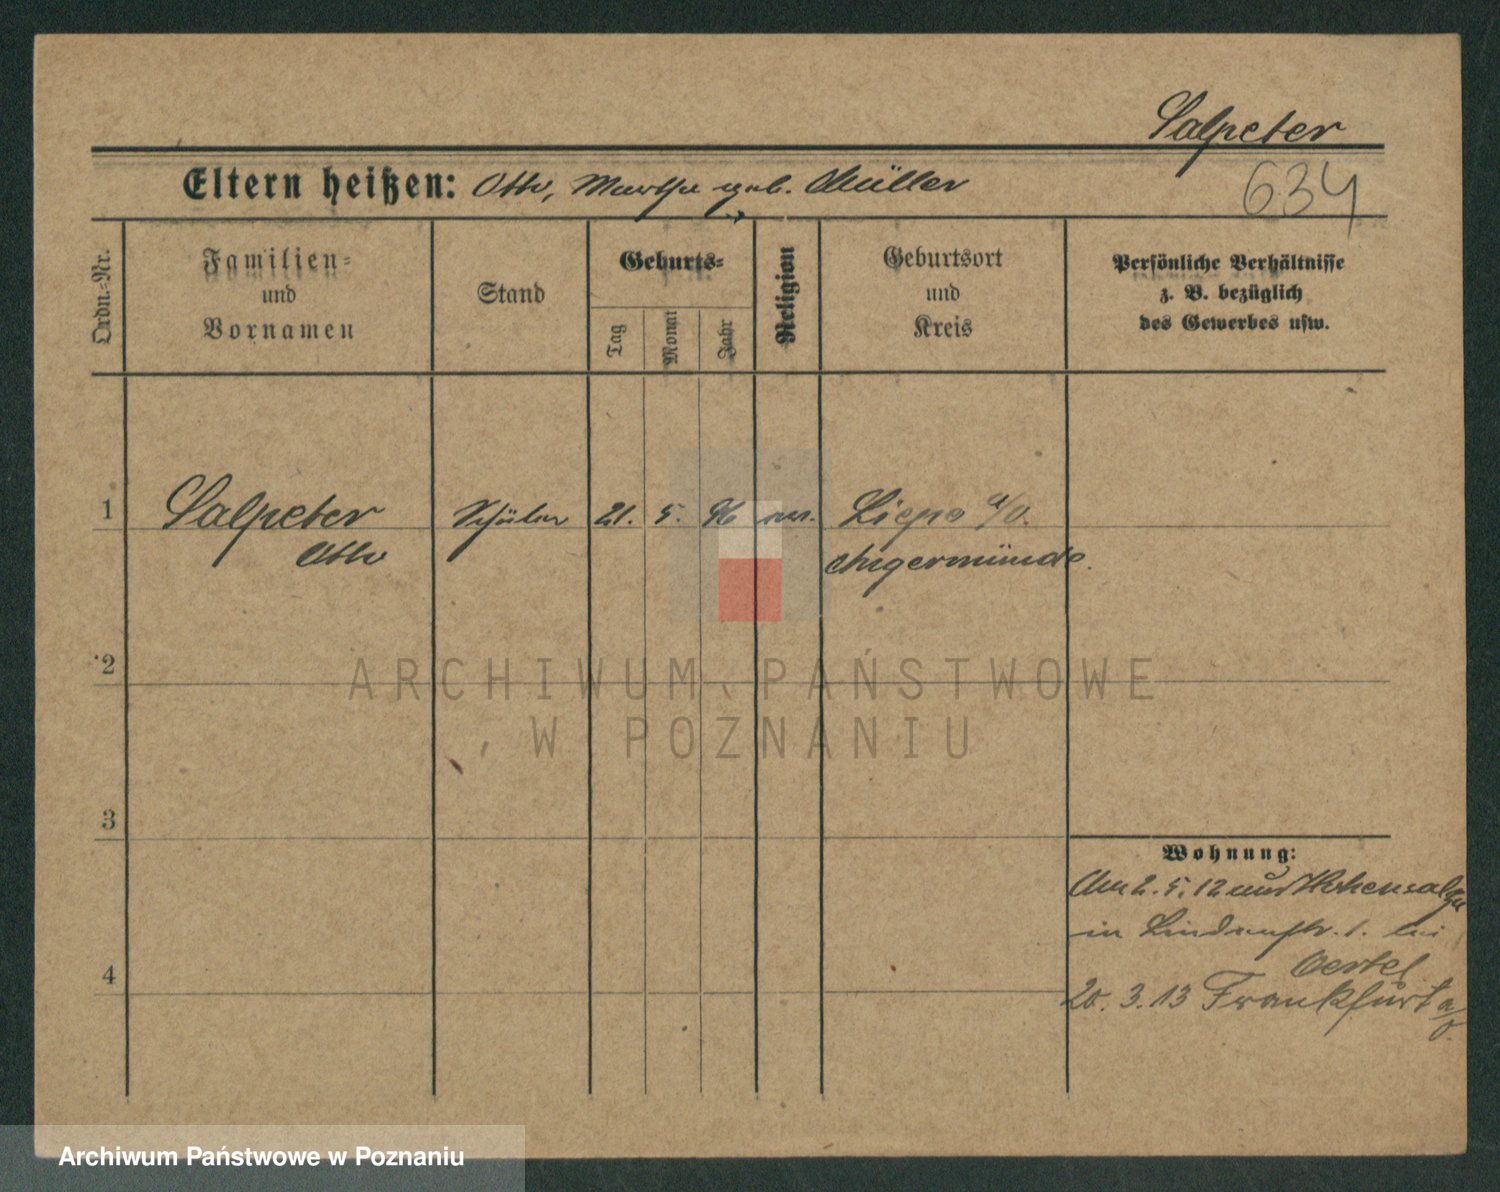 Salpeter
634
Eltern heißen: Otto, Martha geb. Müller
Ordn.-Nr.
Familien-
und
Vornamen
Stand
Geburts-
Tag
Monat
Jahr
Religion
Geburtsort
und
Kreis
Persönliche Verhältnisse
z. B. bezüglich
des Gewerbes usw.
1 Salpeter Schüler 21. 5. 96 ev. Liepe a/O.
Otto Angermünde.
2
3
4
Wohnung:
Am 2. 5. 12 aus Hohensalza
in Lindenstr. 1. bei
Oertel
20. 3. 13 Frankfurt a/O.
ARCHIWUM PAŃSTWOWE
W POZNANIU
Archiwum Państwowe w Poznaniu